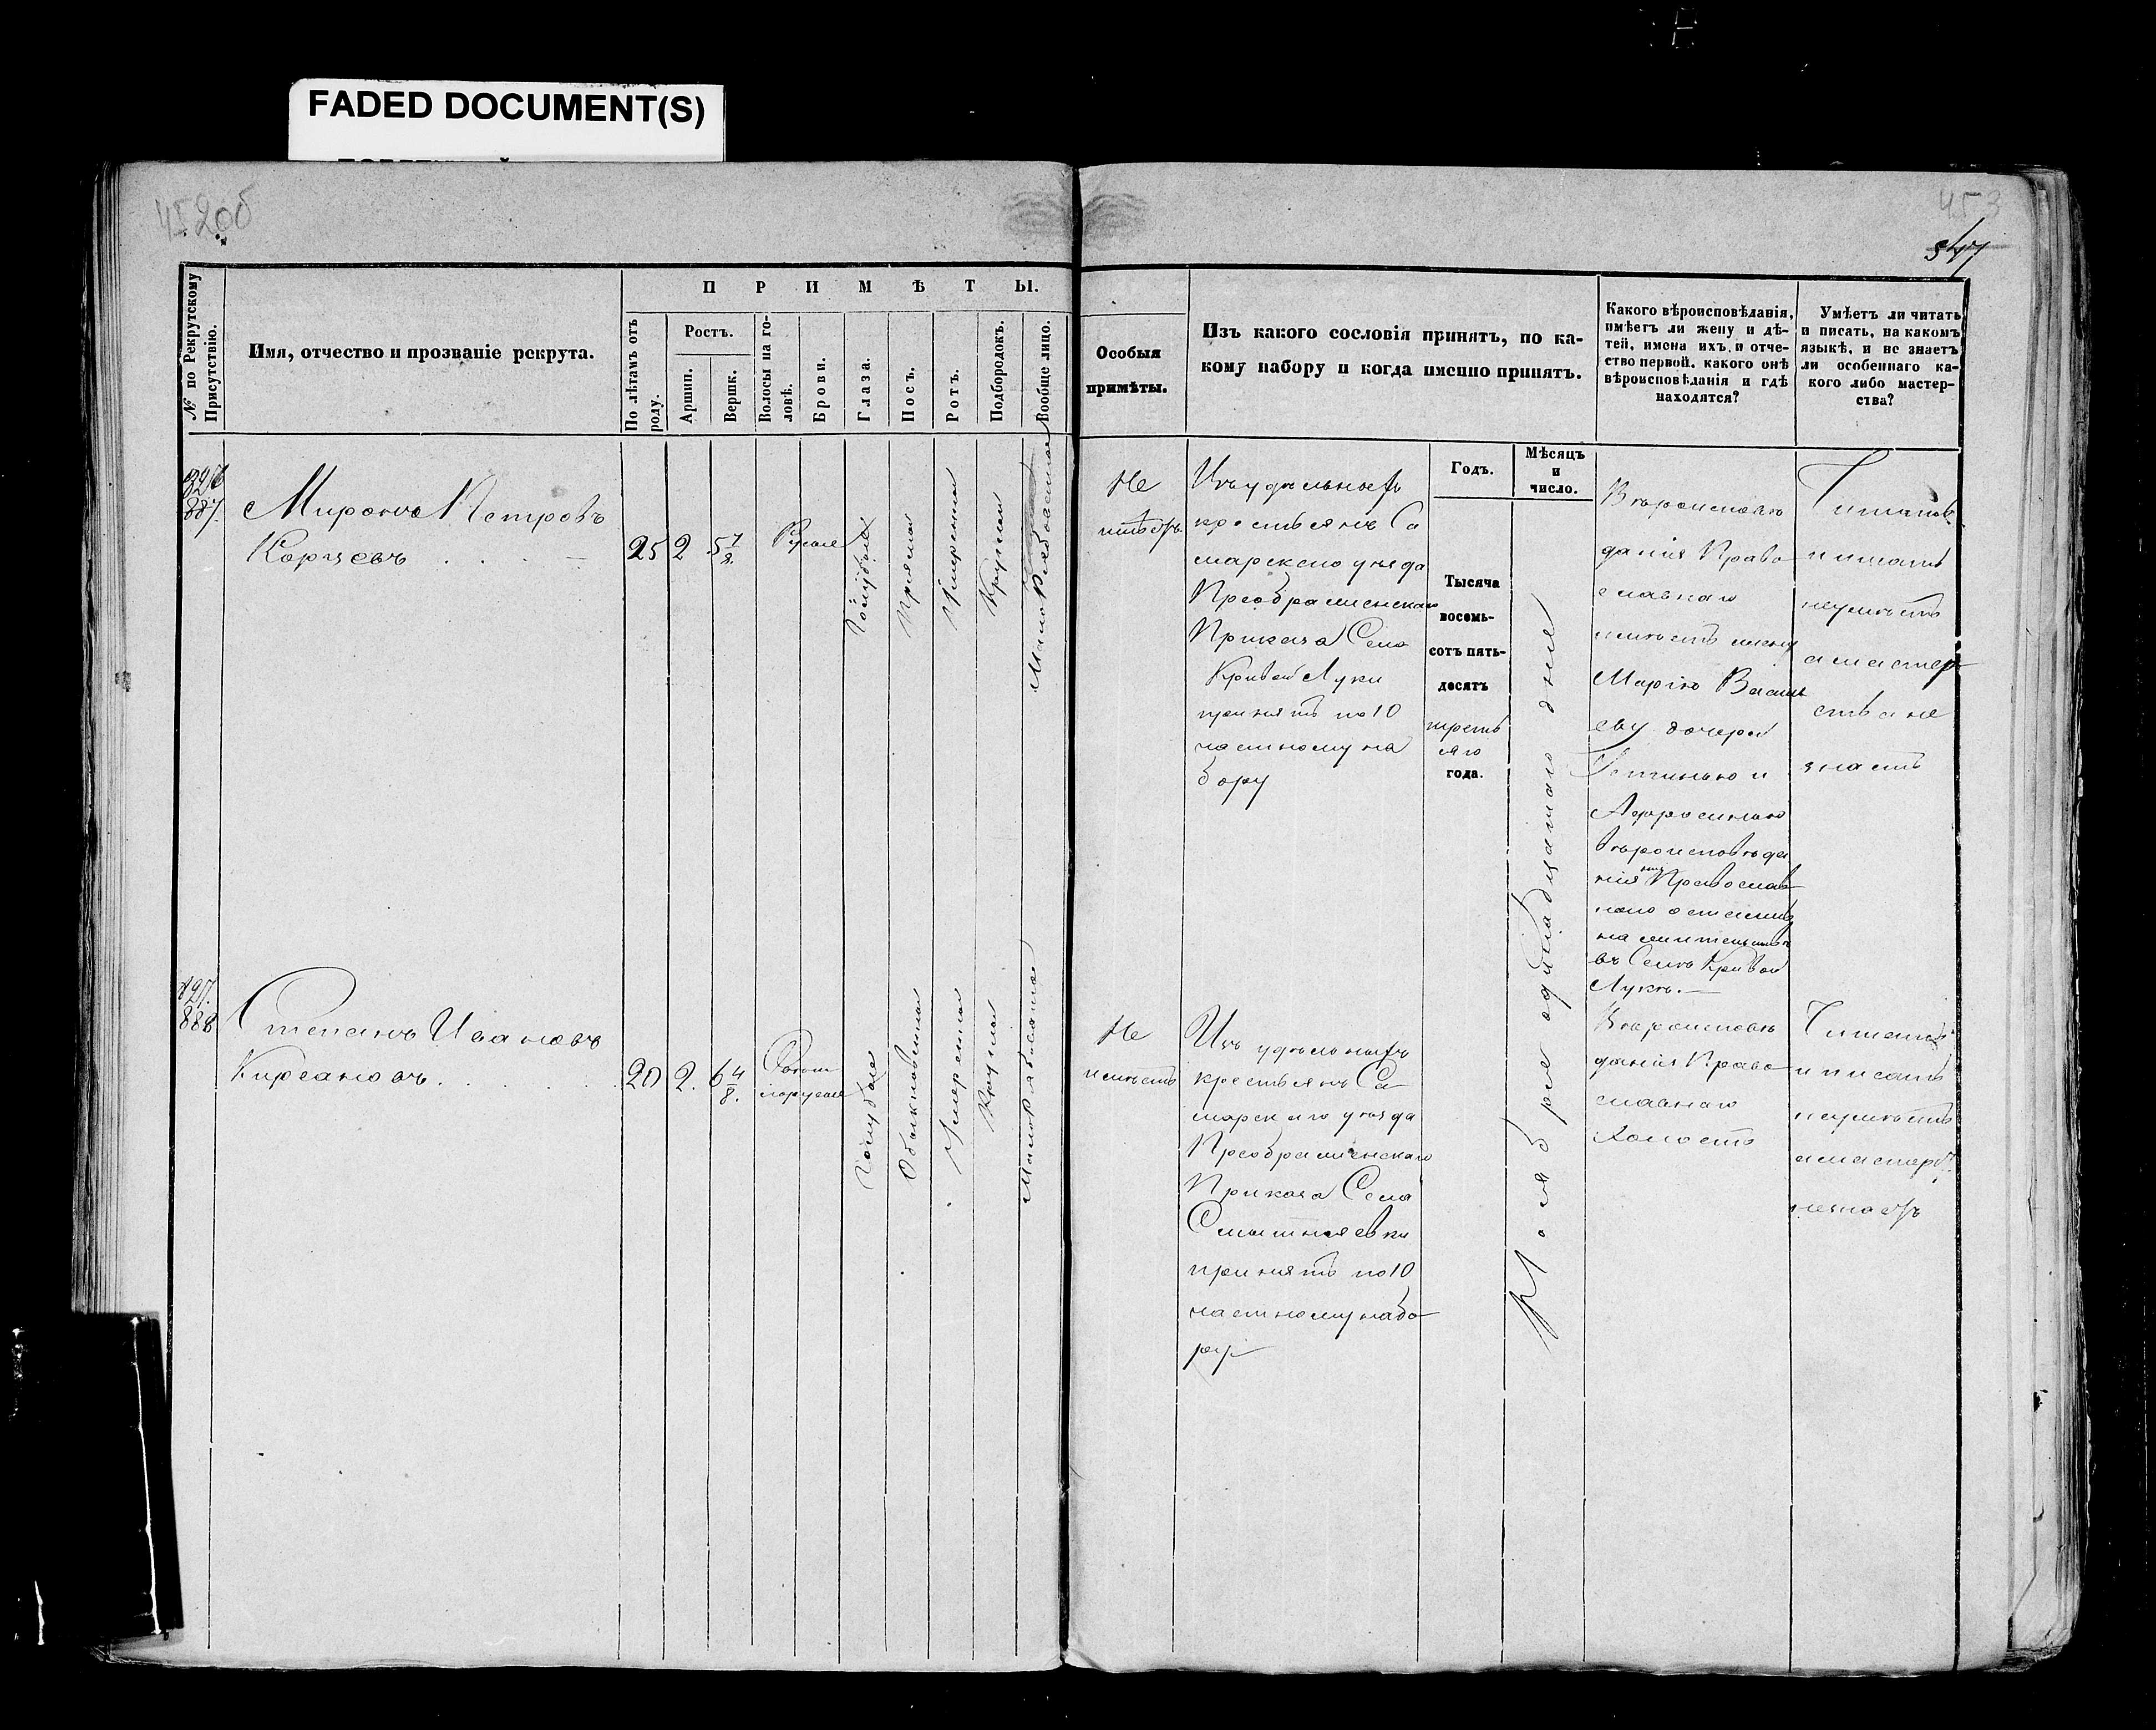 FADED DOCUMENT(S)
452об
453
547
№ по Рекрутскому Присутствію.
Имя, отчество и прозваніе рекрута.
ПРИМѢТЫ.
По лѣтамъ отъ роду.
Ростъ.
Аршин.
Вершк.
Волосы на головѣ.
Брови.
Глаза.
Носъ.
Ротъ.
Подбородокъ.
Вообще лицо.
Особыя
примѣты.
Изъ какого сословія принятъ, по ка-
кому набору и когда именно принятъ.
Какого вѣроисповѣданія,
имѣетъ ли жену и дѣ-
тей, имена ихъ, и отче-
ство первой, какого онѣ
вѣроисповѣданія и гдѣ
находятся?
Умѣетъ ли читать
и писать, на какомъ
языкѣ, и не знаетъ
ли особеннаго ка-
кого либо мастер-
ства?
Годъ.
Мѣсяцъ
и
число.
887.
Миронъ Петровъ
Корчевъ
25
2
Русые
Голубые
Прямой
Умеренный
Круглый
Малорябоватое
Не
имѣетъ
Изъ удельныхъ
крестьянъ Са
марскаго уезда
Преображенскаго
Приказа Села
Кривой Луки
принятъ по 10
частному на
бору
Тысяча
восемь-
сотъ пять-
десятъ
третьяго
года.
Ноября одинадцатаго дня
Вѣроисповѣ
данія Право
славнаго
имѣетъ жену
Марію Василь
еву дочерей
Устинью и
Афросинью
вѣроисповѣда
нія Православ
наго остались
на жительстве
въ Селе Кривой
Луке.
Читать
и писать
неумѣетъ
а мастер
ства не
знаетъ
888
Степанъ Ивановъ
Кирсановъ
20
2.
6 4/8.
Темно
русые
Голубые
Обыкновенный
Умеренный
Круглый
Малорябоватое
Не
имѣетъ
Изъ удельныхъ
крестьянъ Са-
марскаго уезда
Преображенскаго
Приказа Села
принятъ по 10
частному набо-
ру
Вѣроисповѣ
данія Право
славнаго
Холостъ
Читать
и писать
неумѣетъ
а мастерст.
незнаетъ